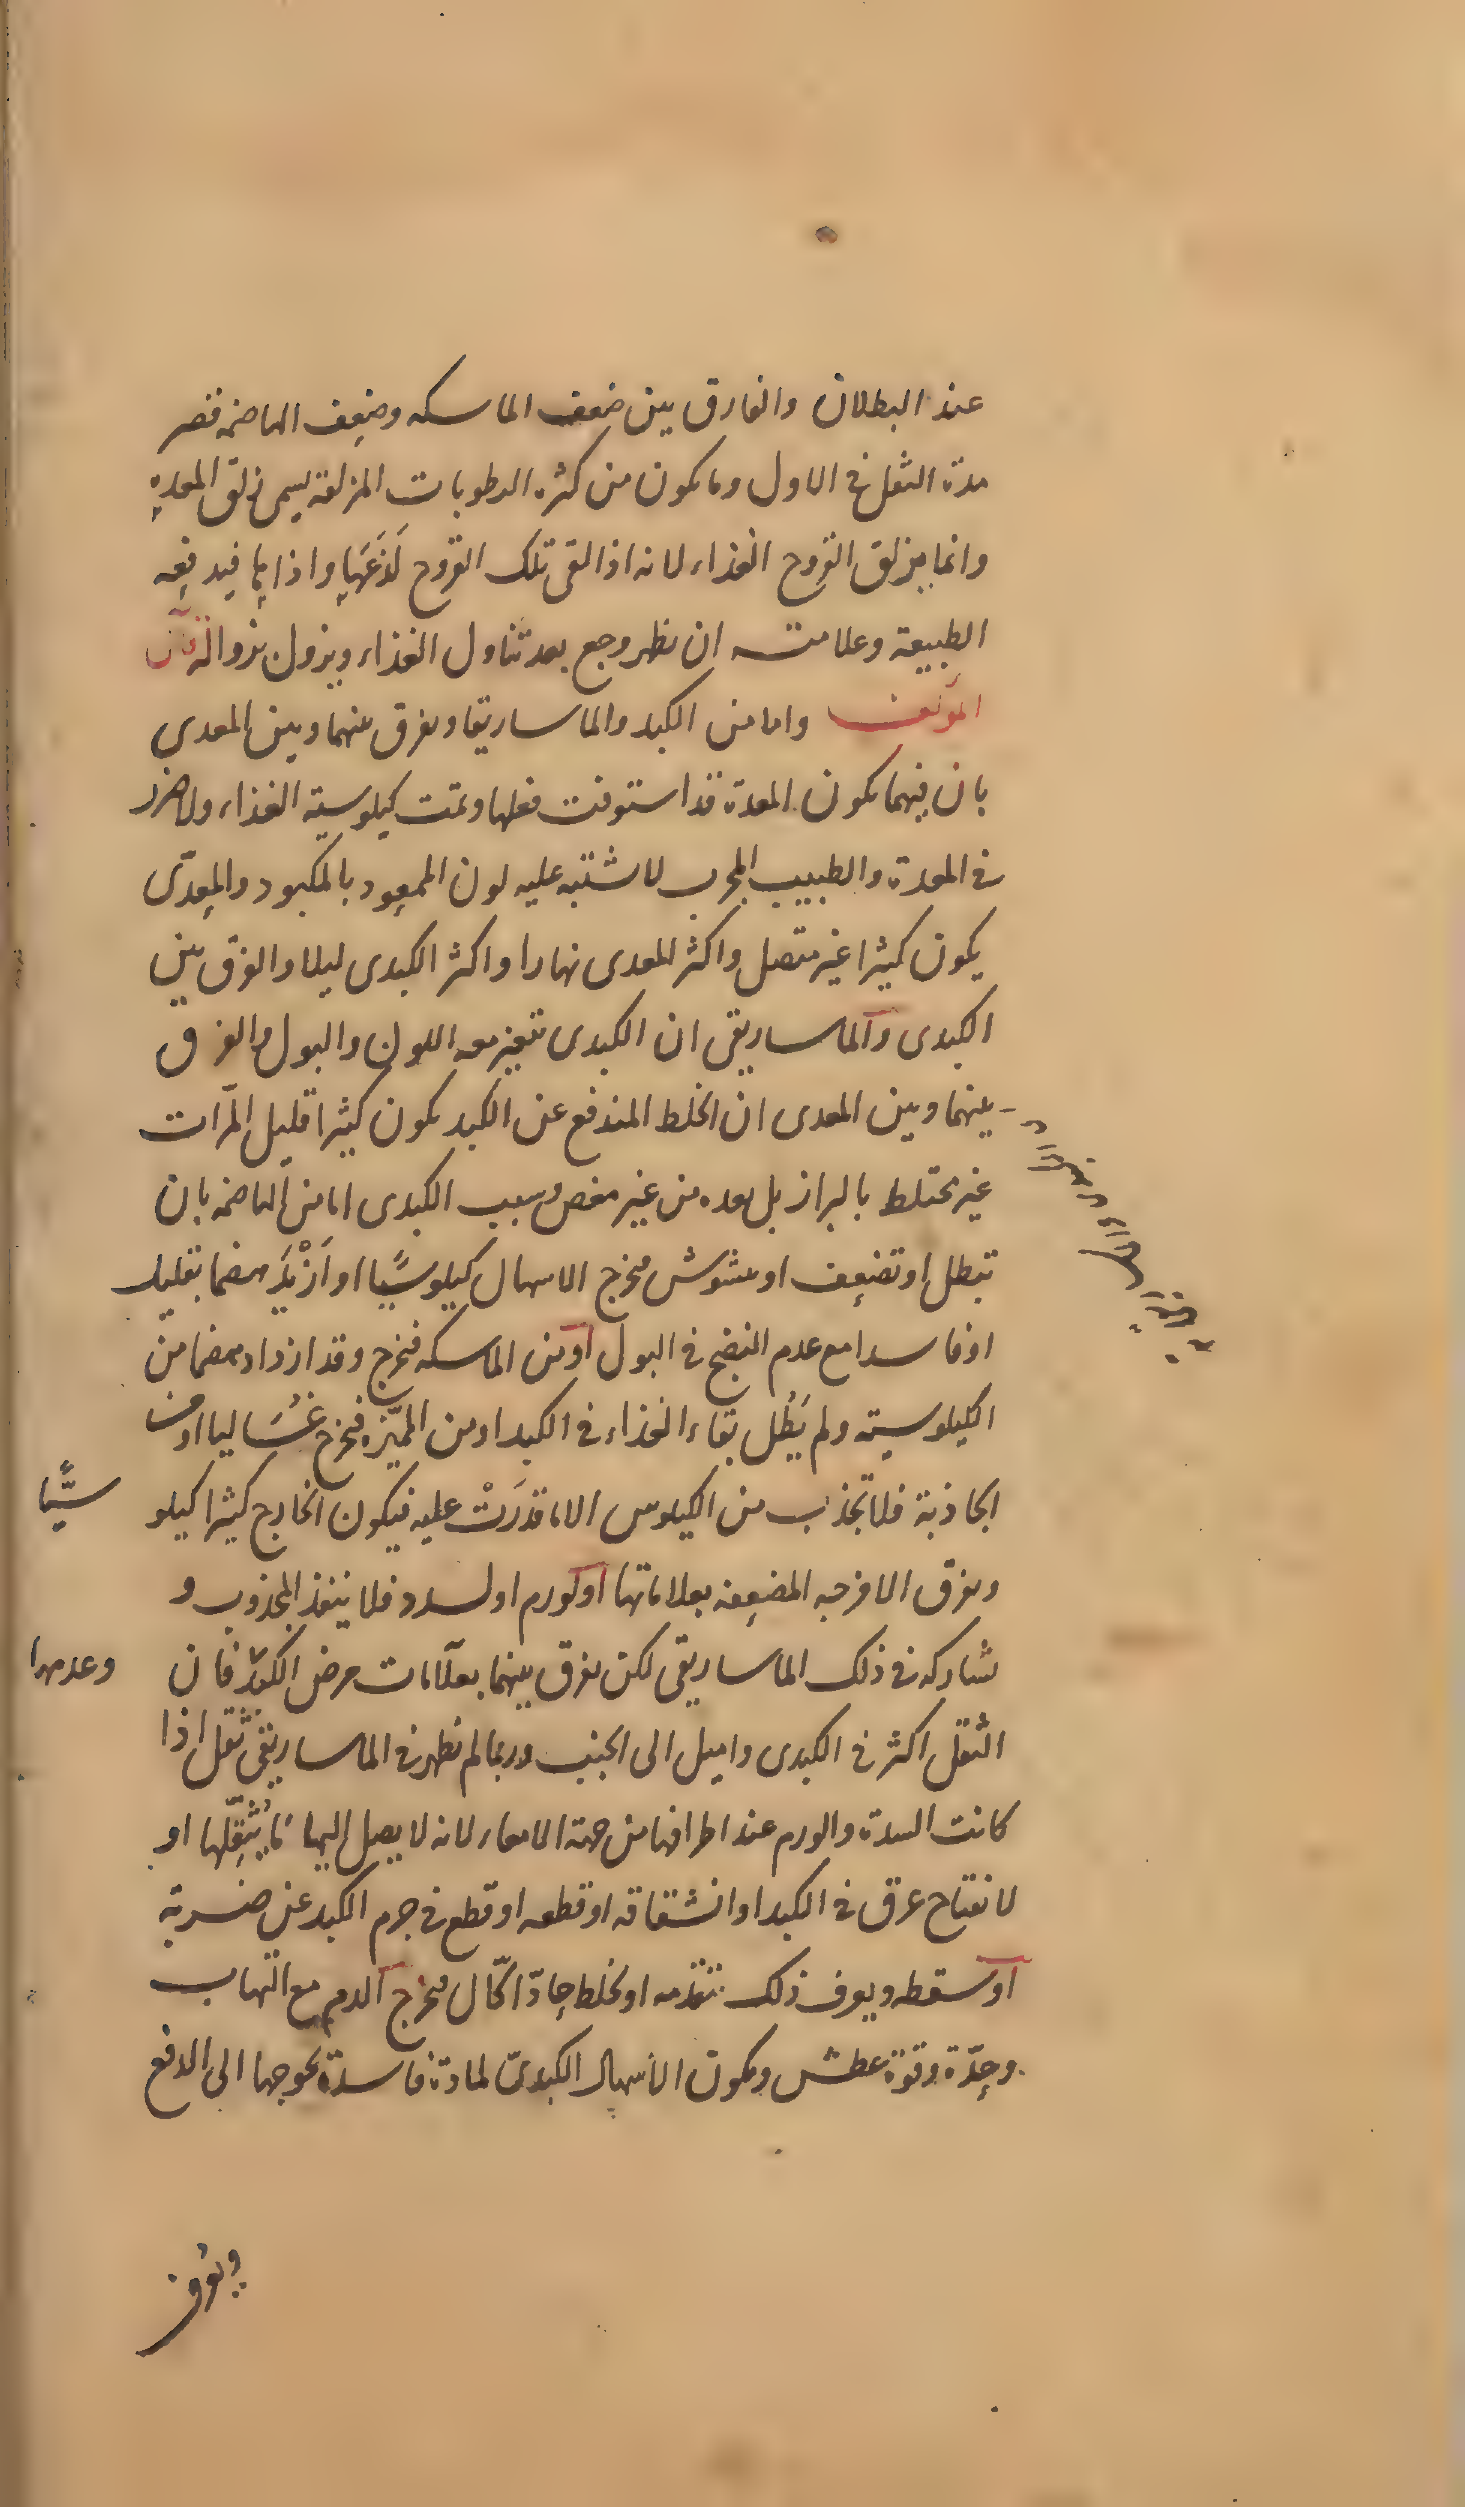 عند البطلان والفارق بين ضعف الماسكه وضعف الهاضمه قصر
مدة الثفل في الاول وما يكون من كثره الرطوبات المزلقة يسمى زلق المعده
وانما يزلق القروح الغذاء لانه اذا لقى تلك القروح لَذَعَهَا واذابها فيدفعه
الطبيعة وعلامته ان يظهر وجع بعد تناول الغذاء ويزول بزواله قال
المؤلف واما من الكبد والماساريقا ويفرق بينهما وبين المعدى
بان فيهما يكون المعدة قد استوفت فعلها وتمت كيلوسية الغذاء ولا ضرر
في المعدة والطبيب المجرب لا يشتبه عليه لون الممعود بالمكبود والمعِدّى
يكون كثيرا غير متصل واكثر المعدى نهارا واكثر الكبدى ليلا والفرق بين
الكبدى والماساريقى ان الكبدى يتغير معه اللون والبول والفرق
بينهما وبين المعدى ان الخلط المندفع عن الكبد يكون كثيرا قليل المرّات
غير مختلط بالبراز بل بعده من غير مغص وسبب الكبدى اما من الهاضمه بان
تبطل او تضعف او يشوش فيخرج الاسهال كيلوسيًّا او اَزْيَدَ هضما بقليل
او فاسدا مع عدم النضج في البول او من الماسكه فيخرج وقد ازداد هضما من
الكيلوسية ولم يَطُل بقاء الغذاء في الكبد او من المميّزه فيخرج غُسَاليا او من
الجاذبة فلا تجذب من الكيلوس الا ما قدَرَتْ عليه فيكون الخارج كثيرا كيلو
سيًّا
ويفرق الامزجه المضعفه بعلاماتها او لورم او لسدد فلا ينفذ المجذوب و
يشاركه في ذلك الماساريقى لكن يفرق بينهما بعلامات مرض الكبد فان
وعدمها
الثقل اكثر في الكبدى واميل الى الجنب وربما لم يظهر في الماساريقى ثقل اذا
كانت السدة والورم عند اطرافها من جهة الامعاء لانه لا يصل اليها ما يُثَقِّلها او
لانفتاح عرق في الكبد او انشقاقه او قطعه او قطع في جرم الكبد عن ضربة
او سقطه ويعرف ذلك بتقدمه او لخلط حادّ اكّال فيخرج الدم مع التهاب
وحِدّة وقوة عطش ويكون الاسهال الكبدىّ لمادة فاسدة يحوجها الى الدفع
ويعرف